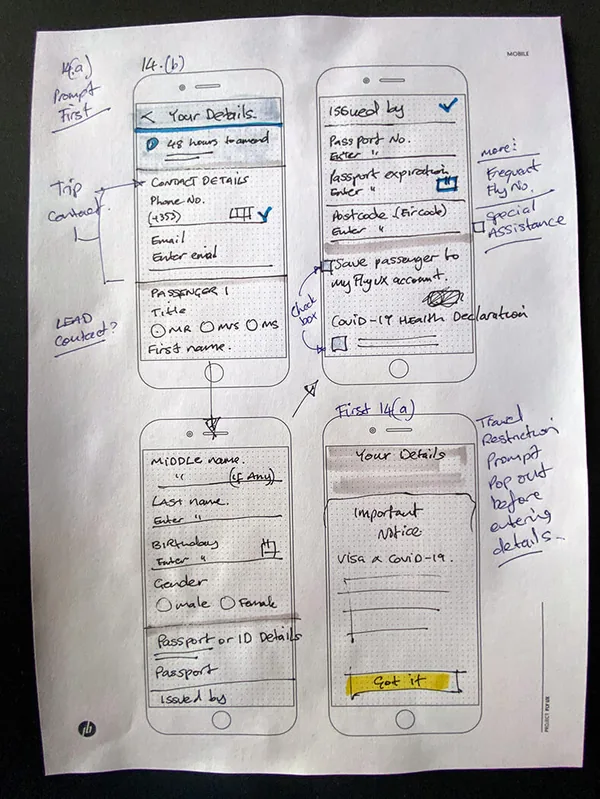 MOBILE
14(a)
Prompt
First
14.(b)
< Your Details.
48 hours to amend
Trip
Contact.
CONTACT DETAILS
Phone No.
(+353)
Email
Enter email
LEAD
Contact?
PASSENGER 1
Title
MR MRS MS
First name.
Issued by
Passport No.
Enter "
Passport expiration
Enter "
Postcode (Eircode)
Enter "
Save passenger to
my FlyUX account.
Check
box
Covid-19 Health Declaration
more:
Frequent
Fly No.
Special
Assistance
Middle name.
" (if Any)
Last name.
Enter "
Birthday
Enter "
Gender
male Female
Passport or ID Details
Passport
Issued by
First 14(a)
Your Details
Important
Notice
Visa & Covid-19.
Got it
Travel
Restriction
Prompt
Pop out
before
entering
details..
PROJECT FLY UX